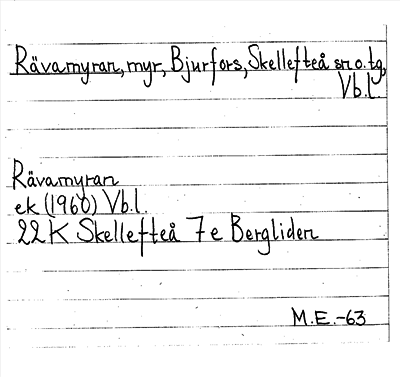 Rävamyran, myr, Bjurfors, Skellefteå sn o. tg,
Vb.l.
Rävamyran
ek (1960) Vb.l.
22 K Skellefteå 7e Bergliden
M.E.-63